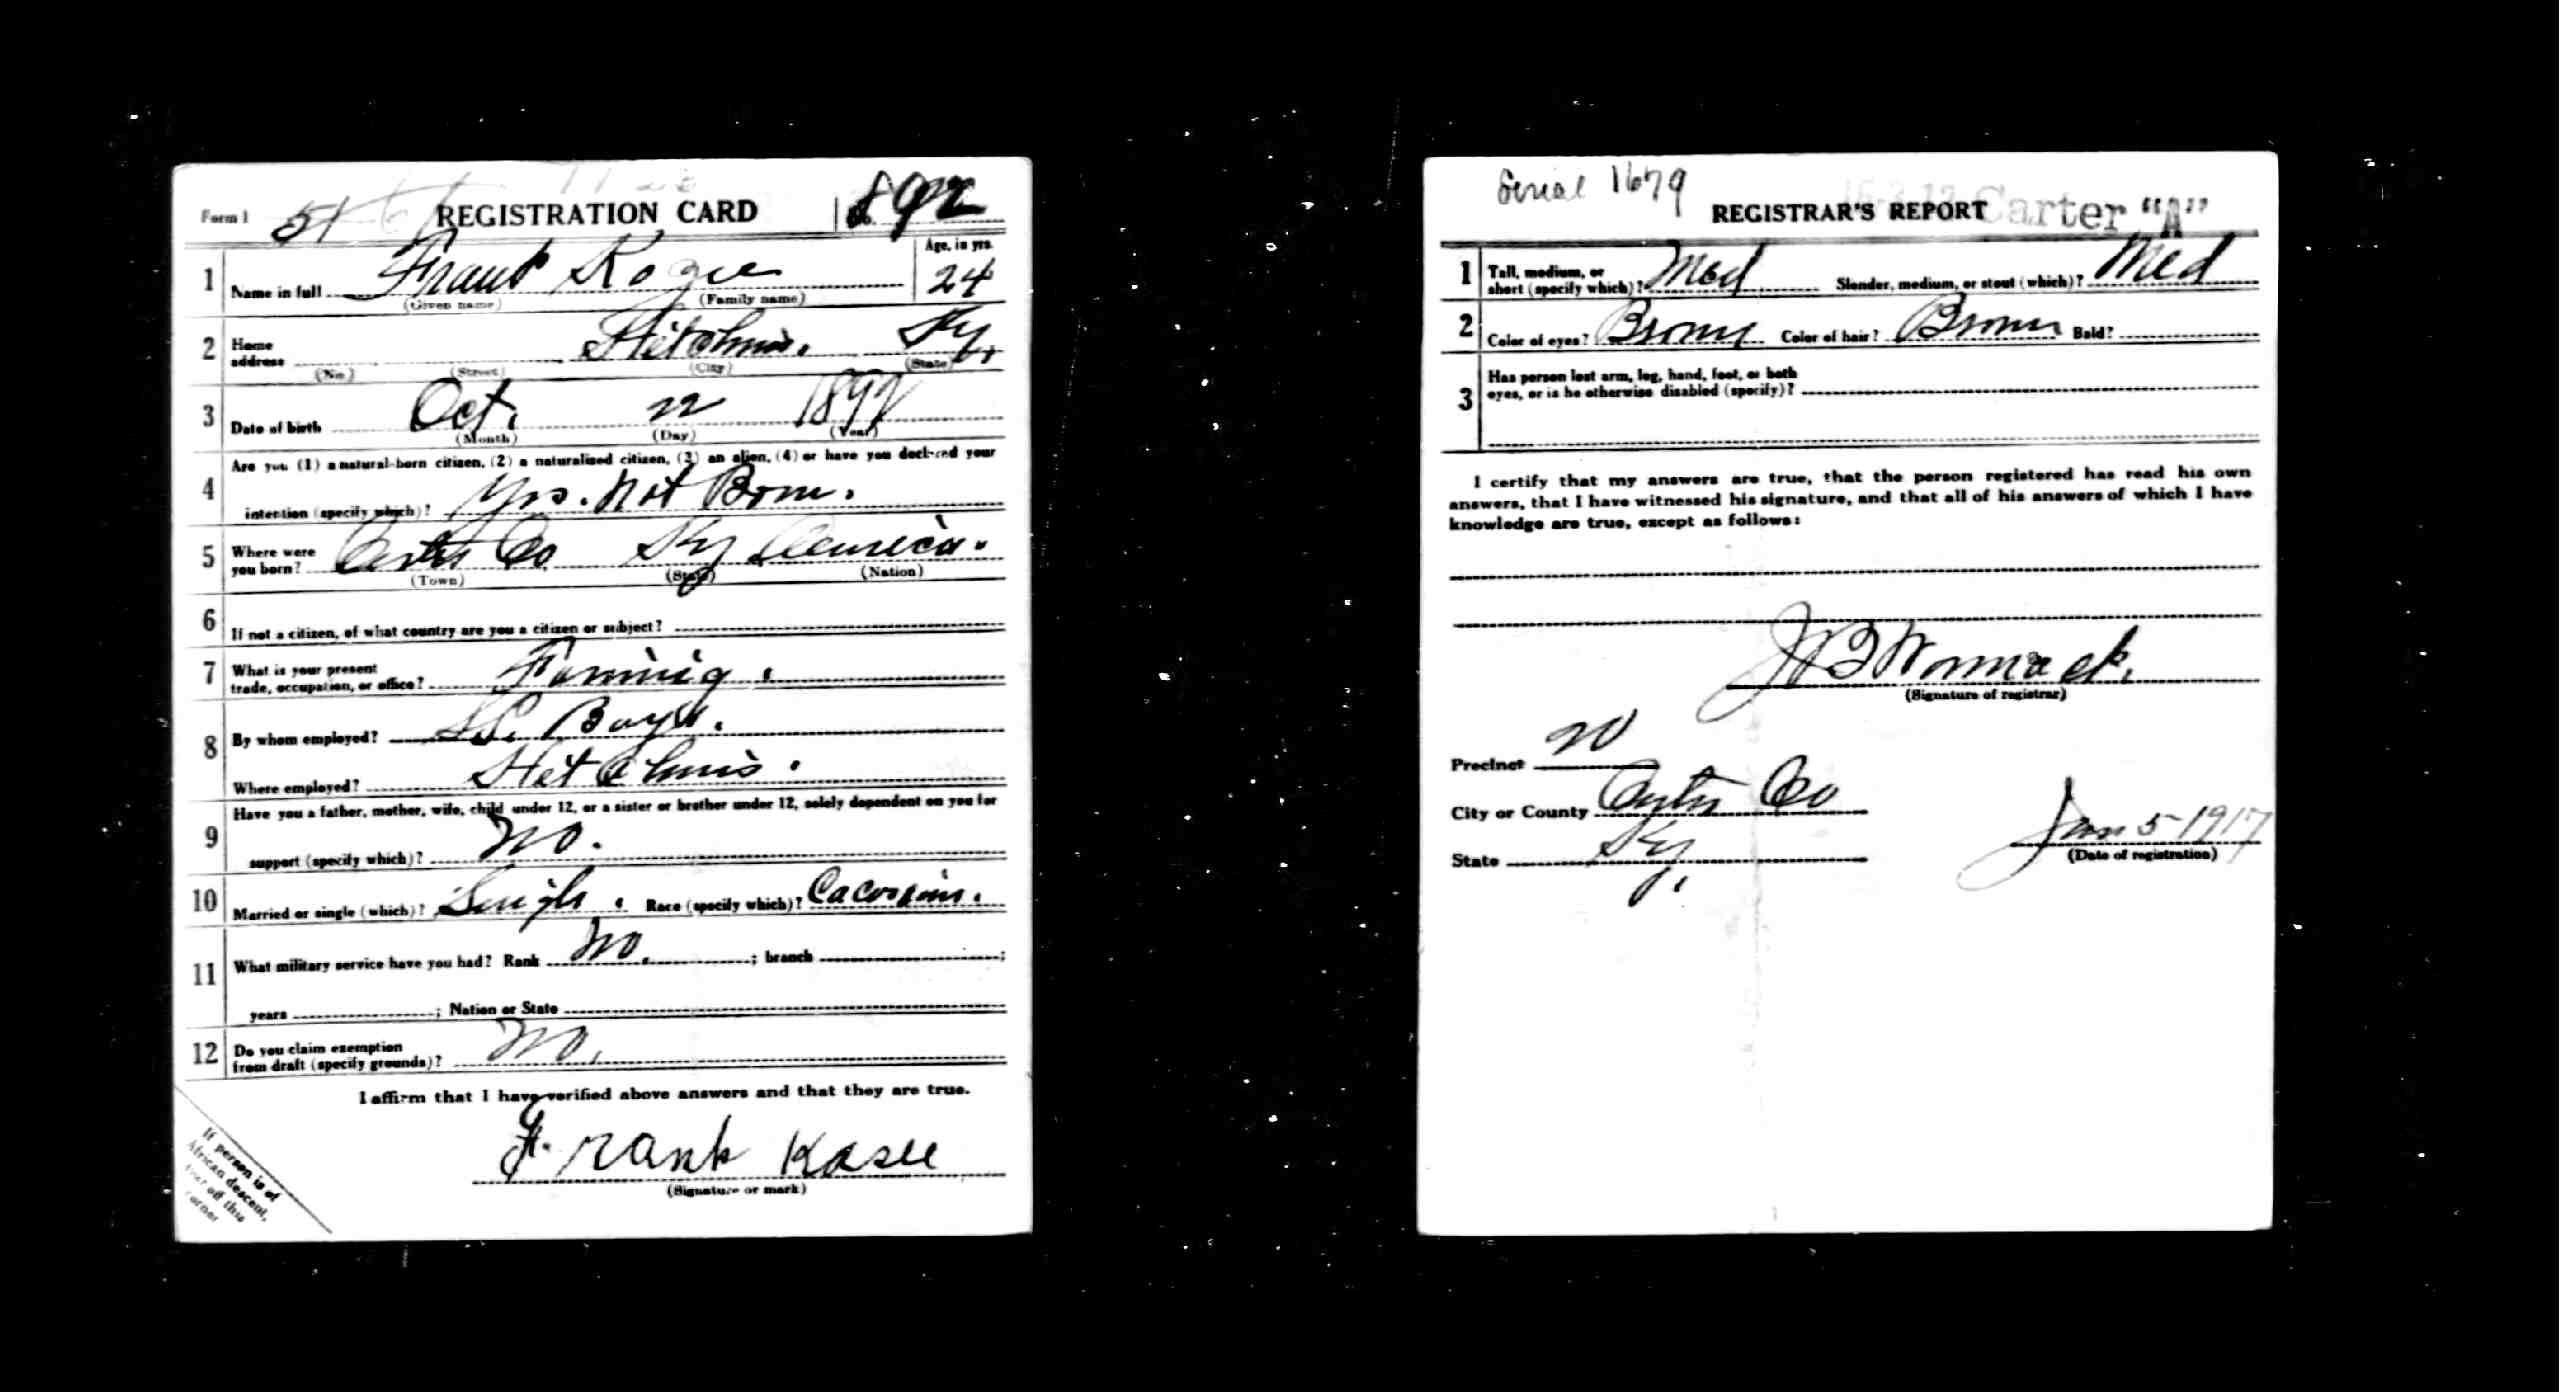 Form 1 51 REGISTRATION CARD No. 892
1 Name in full Frank Kozee Age, in yrs. 24
(Given name) (Family name)
2 Home address Hitchins. Ky.
(No.) (Street) (City) (State)
3 Date of birth Oct. 22 1892
(Month) (Day) (Year)
Are you (1) a natural-born citizen, (2) a naturalized citizen, (3) an alien, (4) or have you declared your
4 intention (specify which)? Yes. Nat Born.
5 Where were you born? Carter Co Ky America.
(Town) (State) (Nation)
6 If not a citizen, of what country are you a citizen or subject?
7 What is your present trade, occupation, or office? Farming.
8 By whom employed?
Where employed? Hitchins.
Have you a father, mother, wife, child under 12, or a sister or brother under 12, solely dependent on you for
9 support (specify which)? No.
10 Married or single (which)? Single. Race (specify which)?
11 What military service have you had? Rank No. ; branch ;
years ; Nation or State
12 Do you claim exemption from draft (specify grounds)? No.
I affirm that I have verified above answers and that they are true.
Frank Kasee
(Signature or mark)
If person is of
African descent,
tear off this
corner
Serial 1679
REGISTRAR'S REPORT Carter "A"
1 Tall, medium, or short (specify which)? Med Slender, medium, or stout (which)? Med
2 Color of eyes? Brown Color of hair? Brown Bald?
3 Has person lost arm, leg, hand, foot, or both
eyes, or is he otherwise disabled (specify)?
I certify that my answers are true, that the person registered has read his own
answers, that I have witnessed his signature, and that all of his answers of which I have
knowledge are true, except as follows:
J B Womack.
(Signature of registrar)
Precinct 20
City or County Carter Co
State Ky.
Jun 5 1917
(Date of registration)